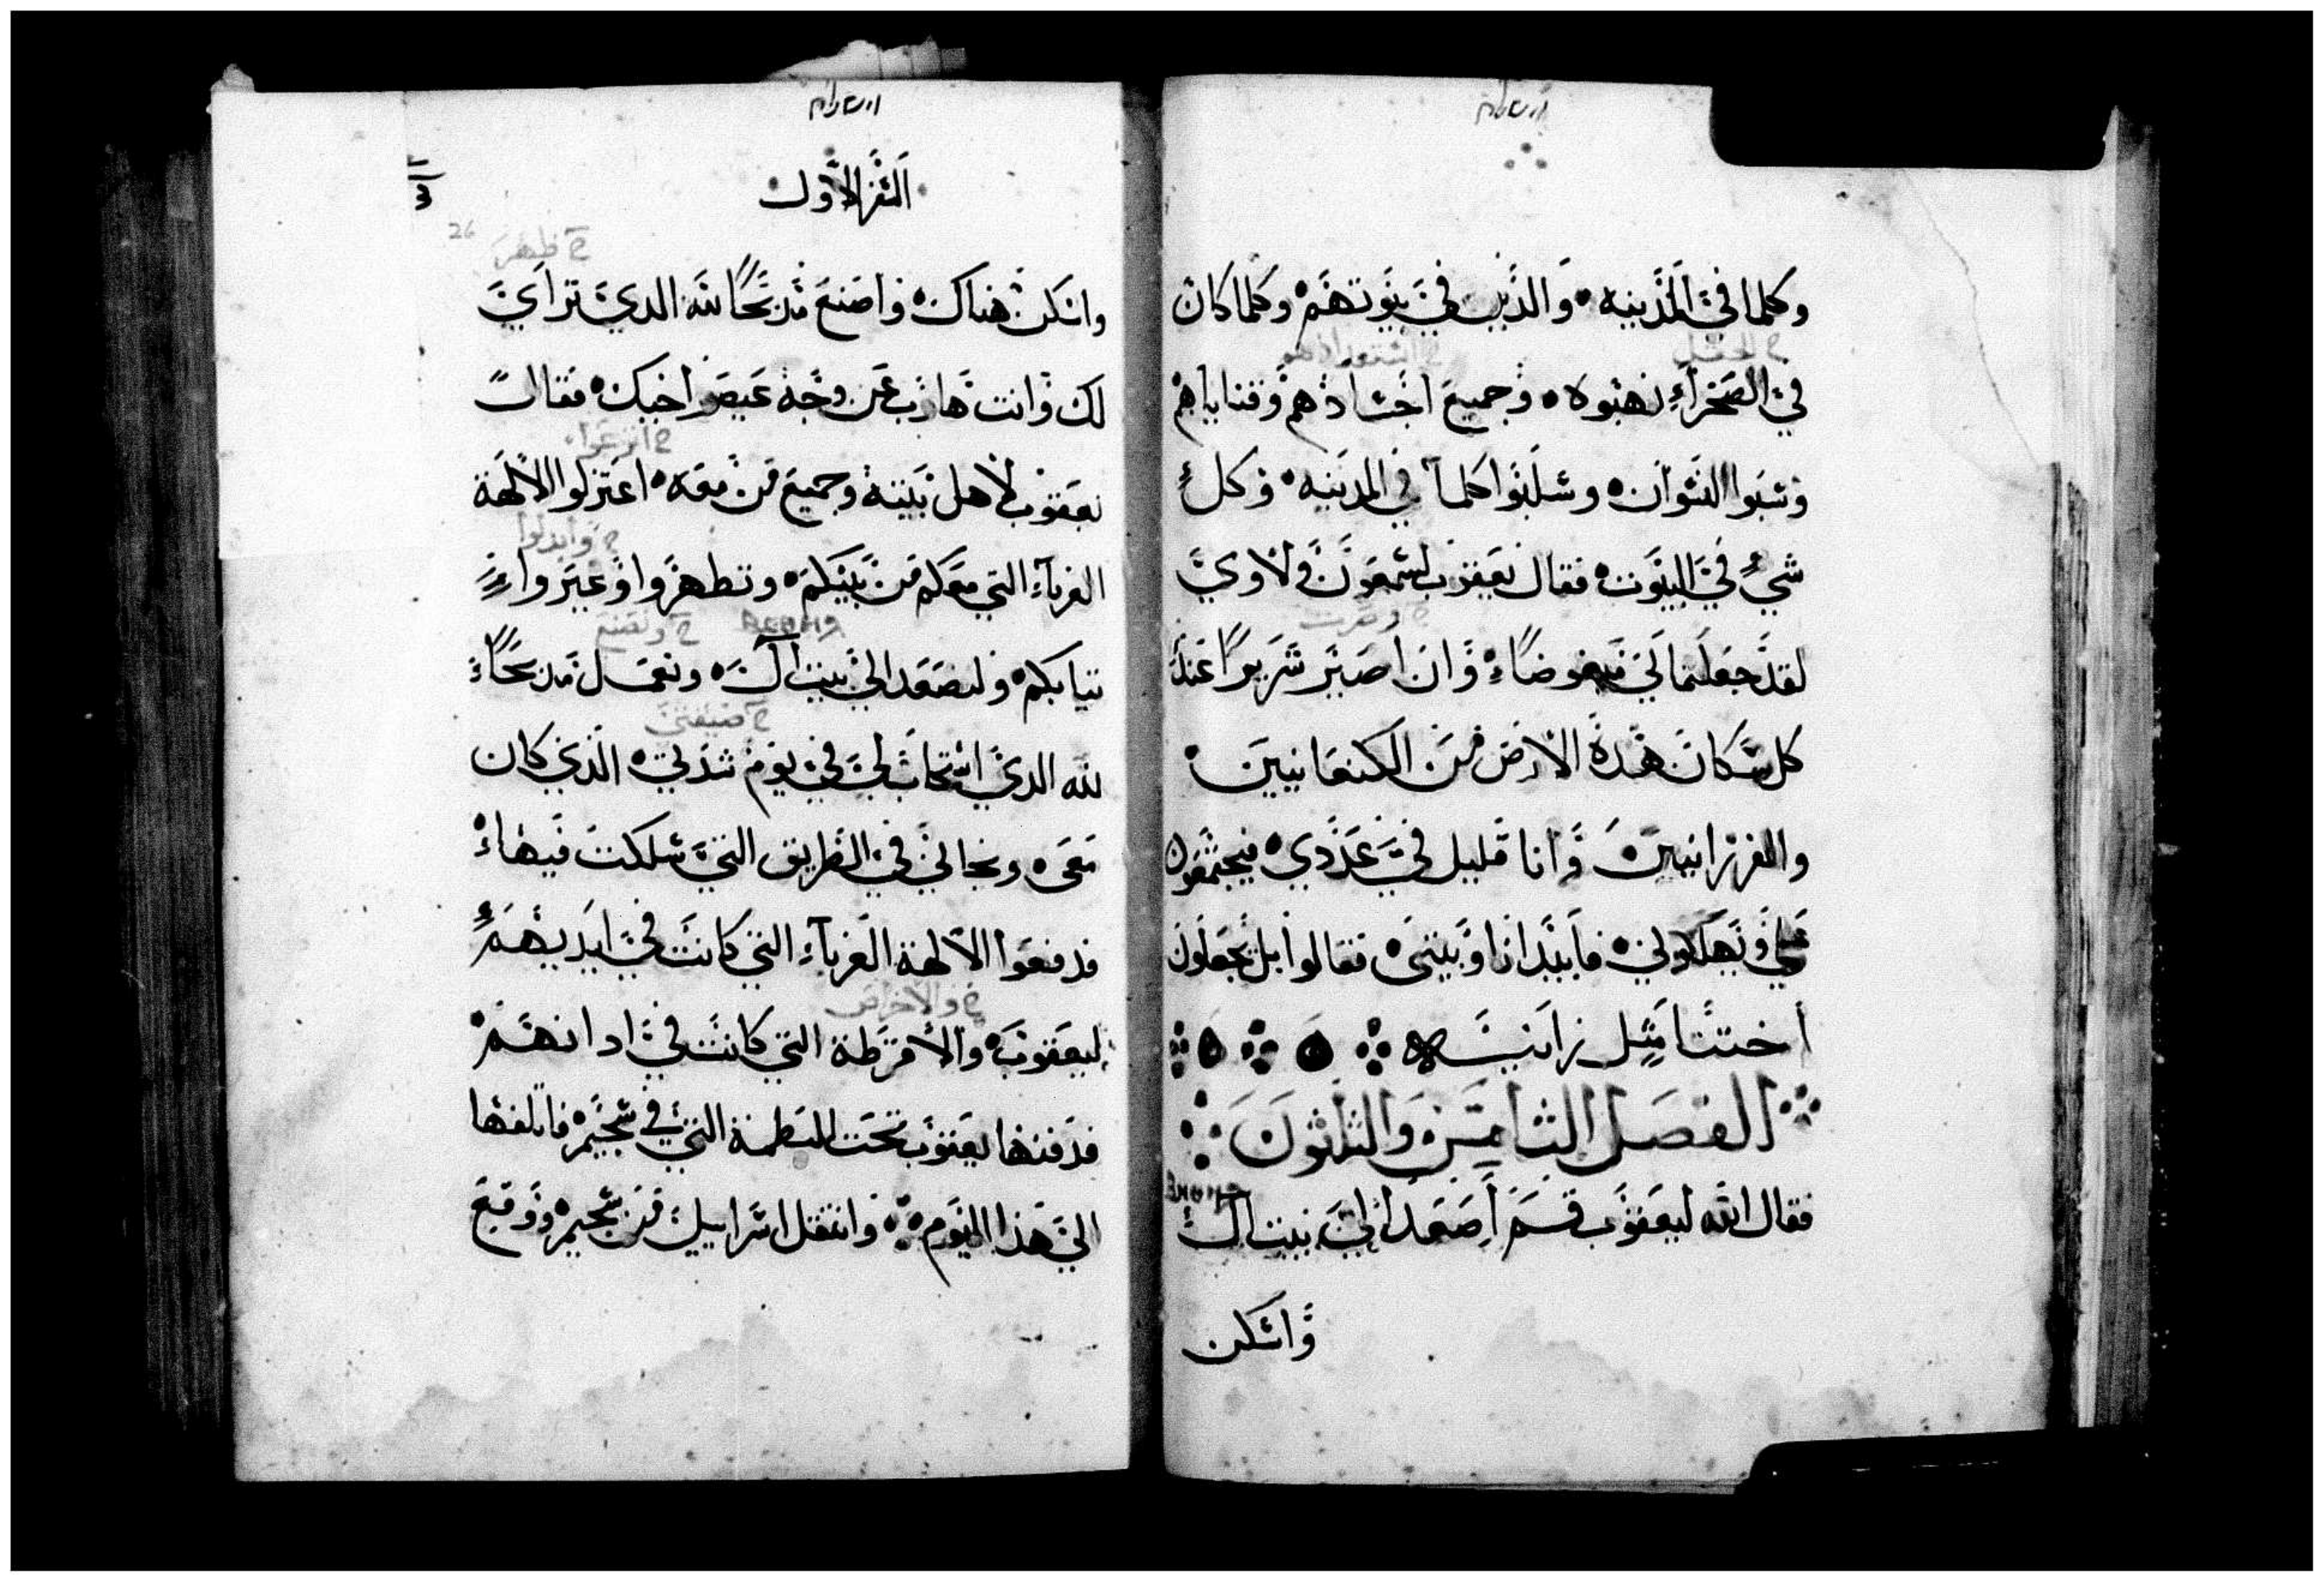 وكلما في المدينه والذين في بيوتهم وكلما كان
ح الحقل
في الصحراء نهبوه وجميع اجسادهم وقناياهم
وسبوا النسوان وسلبوا كلما في المدينه وكل
شيء في البيوت فقال يعقوب لشمعون ولاوي
ح وصرت
لقد جعلتماني مبغوضاً وان اصير شريراً عند
كل سكان هذه الارض من الكنعانيين
والفرزانيين وانا قليل في عددي فيجتمعون
علي ويهلكوني فابيد انا وبيتي فقالوا بل يجعلون
أختنا مثل زانيه
الفصل الثامن والثلثون
فقال الله ليعقوب قم أصعد الي بيت ال
وأسكن
السفر الاول
26
ح ظهر
واسكن هناك واصنع مذبحاً لله الدي تراي
لك وانت هارب عن وجه عيصو اخيك فقال
ح انزعوا
يعقوب لاهل بيته وجميع من معه اعتزلوا الالهة
ح وابدلوا
الغرباء التي معكم من بينكم وتطهروا وغيروا
ح ونصنع
تيابكم ولنصعد الي بيت ال ونعمل مذبحاً
ح ضيقتي
لله الدي استجاب لي في يوم شدتي الذي كان
معي ونجاني في الطريق التي سلكت فيها
فدفعوا الالهة الغرباء التي كانت في ايديهم
ح والاخراص
ليعقوب والاقرطة التي كانت في ادانهم
فدفنها يعقوب تحت البطمة التي في شجيم فاتلفها
الي هذا اليوم وانتقل اسراييل من شجيم ووقع